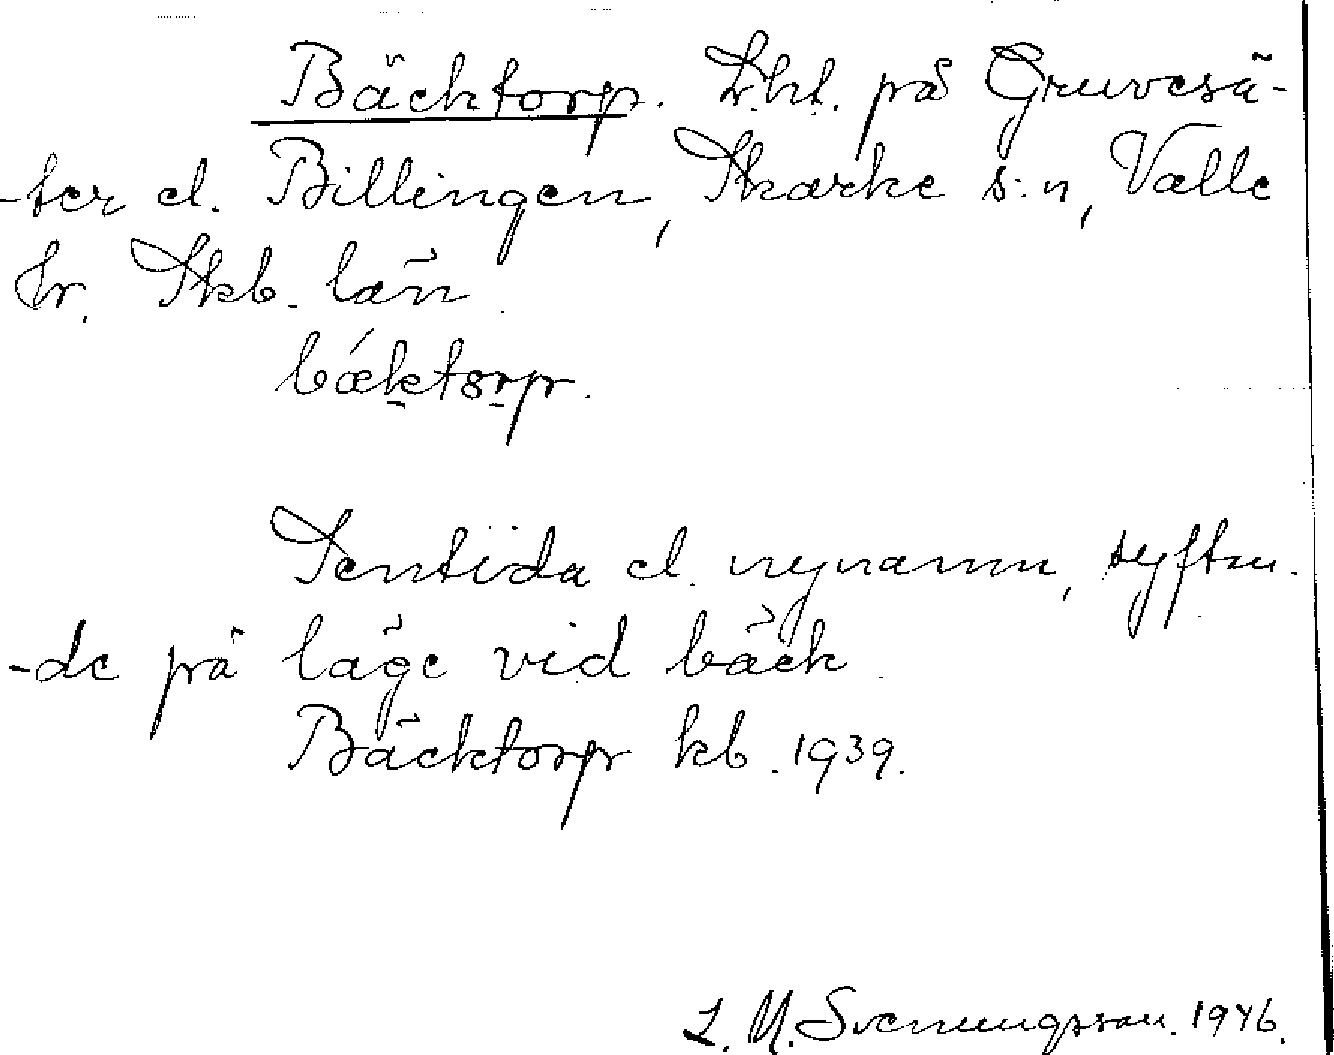 Bäcktorp. Lht. på Gruvesä-
-ter el. Billingen, Skarke s:n, Valle
hr. Skb. län.
bǽktorp.
Sentida el. nynamn, syftan-
-de på läge vid bäck.
Bäcktorp kb. 1939.
L. M. Svenungsson. 1946.